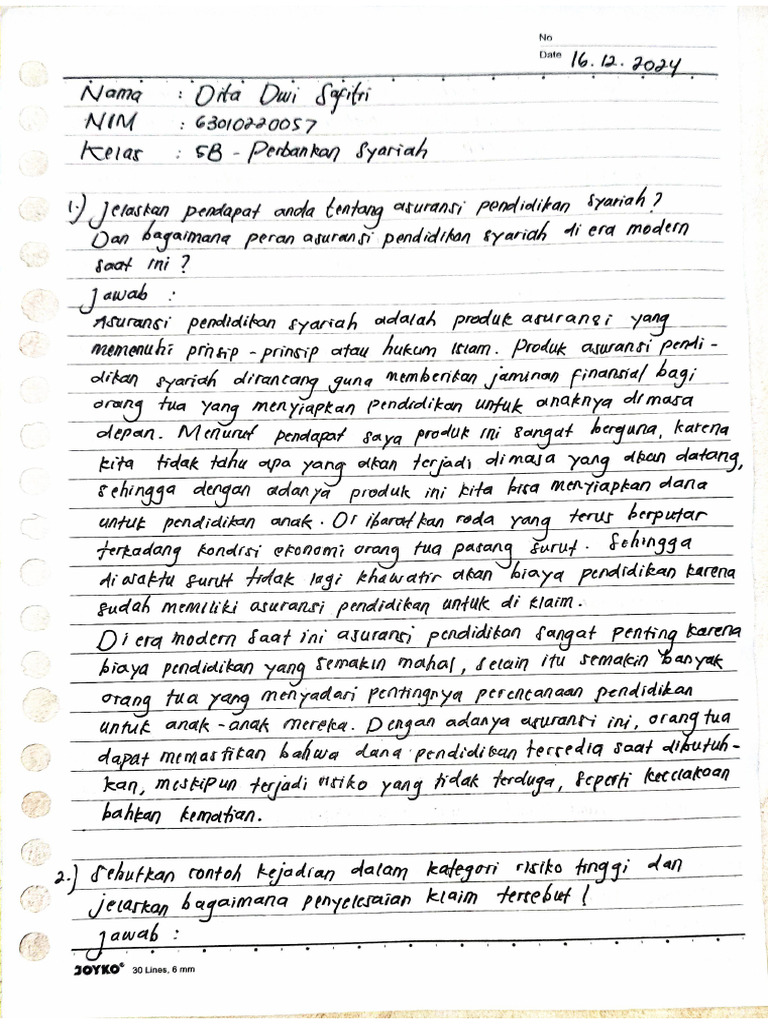 No
Date 16.12.2024
Nama : Dita Dwi Safitri
NIM : 63010220057
Kelas : 5B - Perbankan Syariah
1.) Jelaskan pendapat anda tentang asuransi pendidikan syariah?
Dan bagaimana peran asuransi pendidikan syariah di era modern
saat ini?
Jawab :
Asuransi pendidikan syariah adalah produk asuransi yang
memenuhi prinsip-prinsip atau hukum Islam. Produk asuransi pendi-
dikan syariah dirancang guna memberikan jaminan finansial bagi
orang tua yang menyiapkan pendidikan untuk anaknya dimasa
depan. Menurut pendapat saya produk ini sangat berguna, karena
kita tidak tahu apa yang akan terjadi dimasa yang akan datang,
sehingga dengan adanya produk ini kita bisa menyiapkan dana
untuk pendidikan anak. Di ibaratkan roda yang terus berputar
terkadang kondisi ekonomi orang tua pasang surut. Sehingga
diwaktu surut tidak lagi khawatir akan biaya pendidikan karena
sudah memiliki asuransi pendidikan untuk di klaim.
Di era modern saat ini asuransi pendidikan sangat penting karena
biaya pendidikan yang semakin mahal, selain itu semakin banyak
orang tua yang menyadari pentingnya perencanaan pendidikan
untuk anak-anak mereka. Dengan adanya asuransi ini, orang tua
dapat memastikan bahwa dana pendidikan tersedia saat dibutuh-
kan, meskipun terjadi risiko yang tidak terduga, seperti kecelakaan
bahkan kematian.
2.) Sebutkan contoh kejadian dalam kategori risiko tinggi dan
jelaskan bagaimana penyelesaian klaim tersebut!
Jawab :
JOYKO® 30 Lines, 6 mm